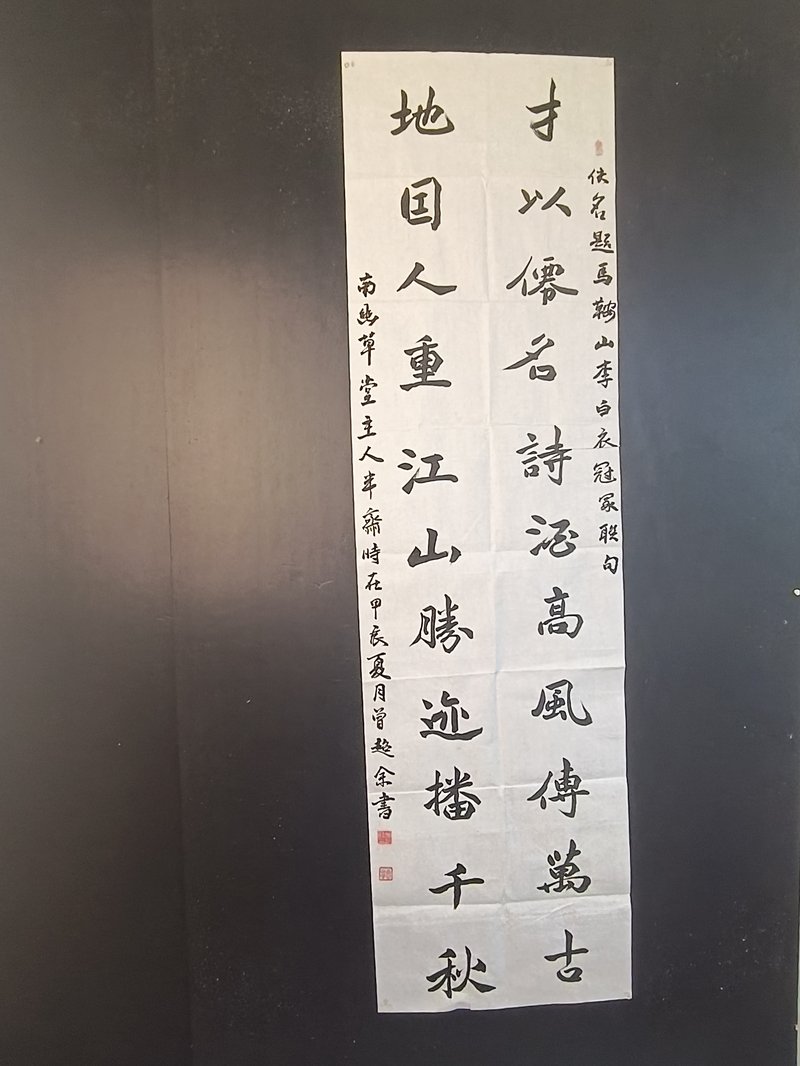 佚名题马鞍山李白衣冠冢联句
才以僊名詩酒高風傳萬古
地因人重江山勝迹播千秋
南幽草堂主人半齋時在甲辰夏月曾超余書